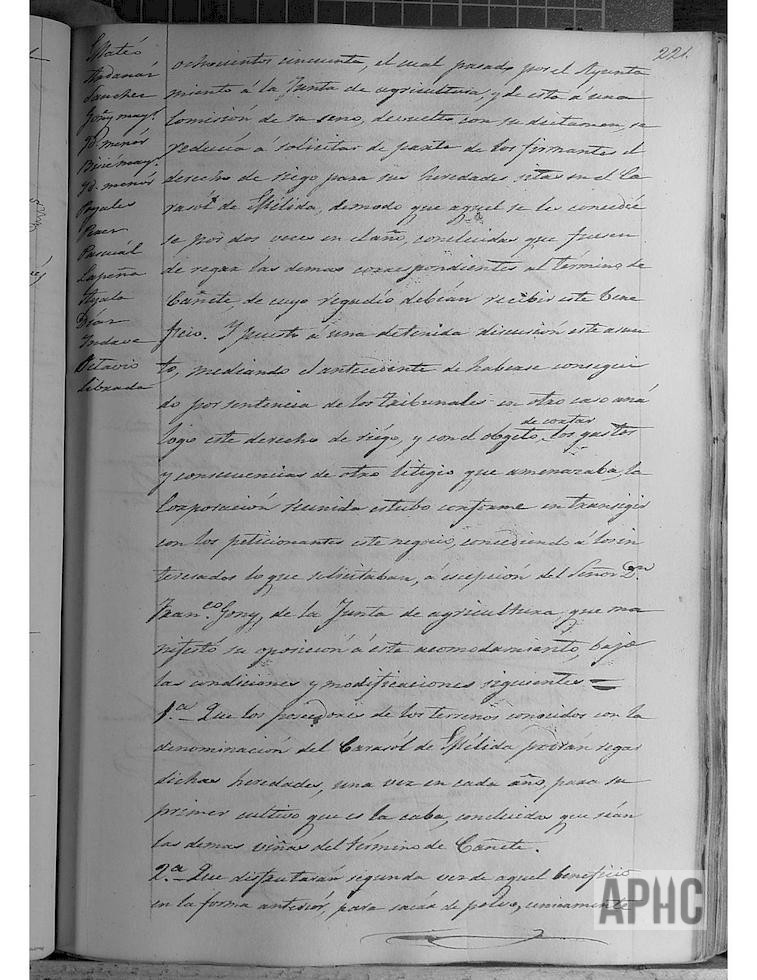 221.
Mateo
Sanchez
Goñy may.r
Yd. menór
Biñé may.r
Yd. menór
Royales
Pascuál
Lapeña
Ayala
Diaz
Yndave
Octavio
Librada
ochocientos cincuenta, el cual pasado por el Ayunta
miento á la Junta de agricultura, y de esta á una
Comisión de su seno, devuelto con su dictamen, se
reducia á solicitar de parte de los firmantes el
derecho de riego para sus heredades sitas en el Ca
rasól de Mélida, de modo que aquel se les concedie
se por dos veces en el año, concluidas que fuesen
de regar las demas correspondientes al término de
Cañete, de cuyo regadío debían recibir este bene
ficio. Y puesto á una detenida discusión este asun
to, mediando el antecedente de haberse consegui
do por sentencia de los Tribunales en otro caso aná
logo este derecho de riego, y con el obgeto de cortar los gastos
y consecuencias de otro litigio que amenazaba, la
Corporación reunida estubo conforme en transigir
con los peticionantes este negocio, concediendo á los in
teresados lo que solicitaban, á escepción del Señor D.n
Fran.co Goñy, de la Junta de agricultura, que ma
nifestó su oposición á este acomodamiento, bajo
las condiciones y modificaciones siguientes =
1.a - Que los poseedores de los terrenos conocidos con la
denominación del Carasól de Mélida podrán regar
dichas heredades, una vez en cada año, para su
primer cultivo que es la caba, concluidas que séan
las demas viñas del término de Cañete.
2.a - Que disfrutarán segunda vez de aquel beneficio
en la forma anteriór, para sacár de polvo, unicamente
APHC